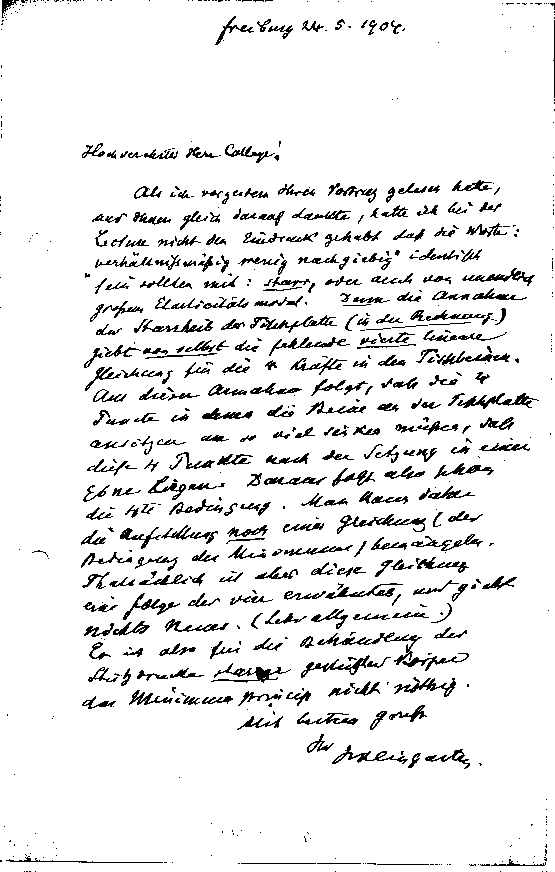 Freiburg 24. 5. 1904.
Hochverehrter Herr College!
Als ich vorgestern Ihren Vortrag gelesen hatte,
und Ihnen gleich darauf dankte, hatte ich bei der
Lecture nicht den Eindruck gehabt daß die Worte:
"verhältnißmäßig wenig nachgiebig" identisch
sein sollten mit: starr, oder auch von unendlich
großem Elasticitätsmodul. Denn die Annahme
der Starrheit der Tischplatte (in der Rechnung)
giebt von selbst die fehlende vierte lineare
Gleichung für die 4 Kräfte in den Tischbeinen.
Aus dieser Annahme folgt, daß die 4
Puncte in denen die Beine an der Tischplatte
ansetzen um so viel sinken müßen, daß
diese 4 Punkte nach der Setzung in einer
Ebne liegen. Daraus folgt also schon
die 4te Bedingung. Man kann daher
die Aufstellung noch einer Gleichung (der
Bedingung des Minimums) bemängeln.
Thatsächlich ist aber diese Gleichung
eine Folge der vier erwähnten, und giebt
nichts Neues. (Sehr allgemein.)
Es ist also für die Behandlung der
Stützdrucke starrer gestützter Körper
das Minimum Princip nicht nöthig.
Mit bestem Gruß
Ihr
JWeingarten.